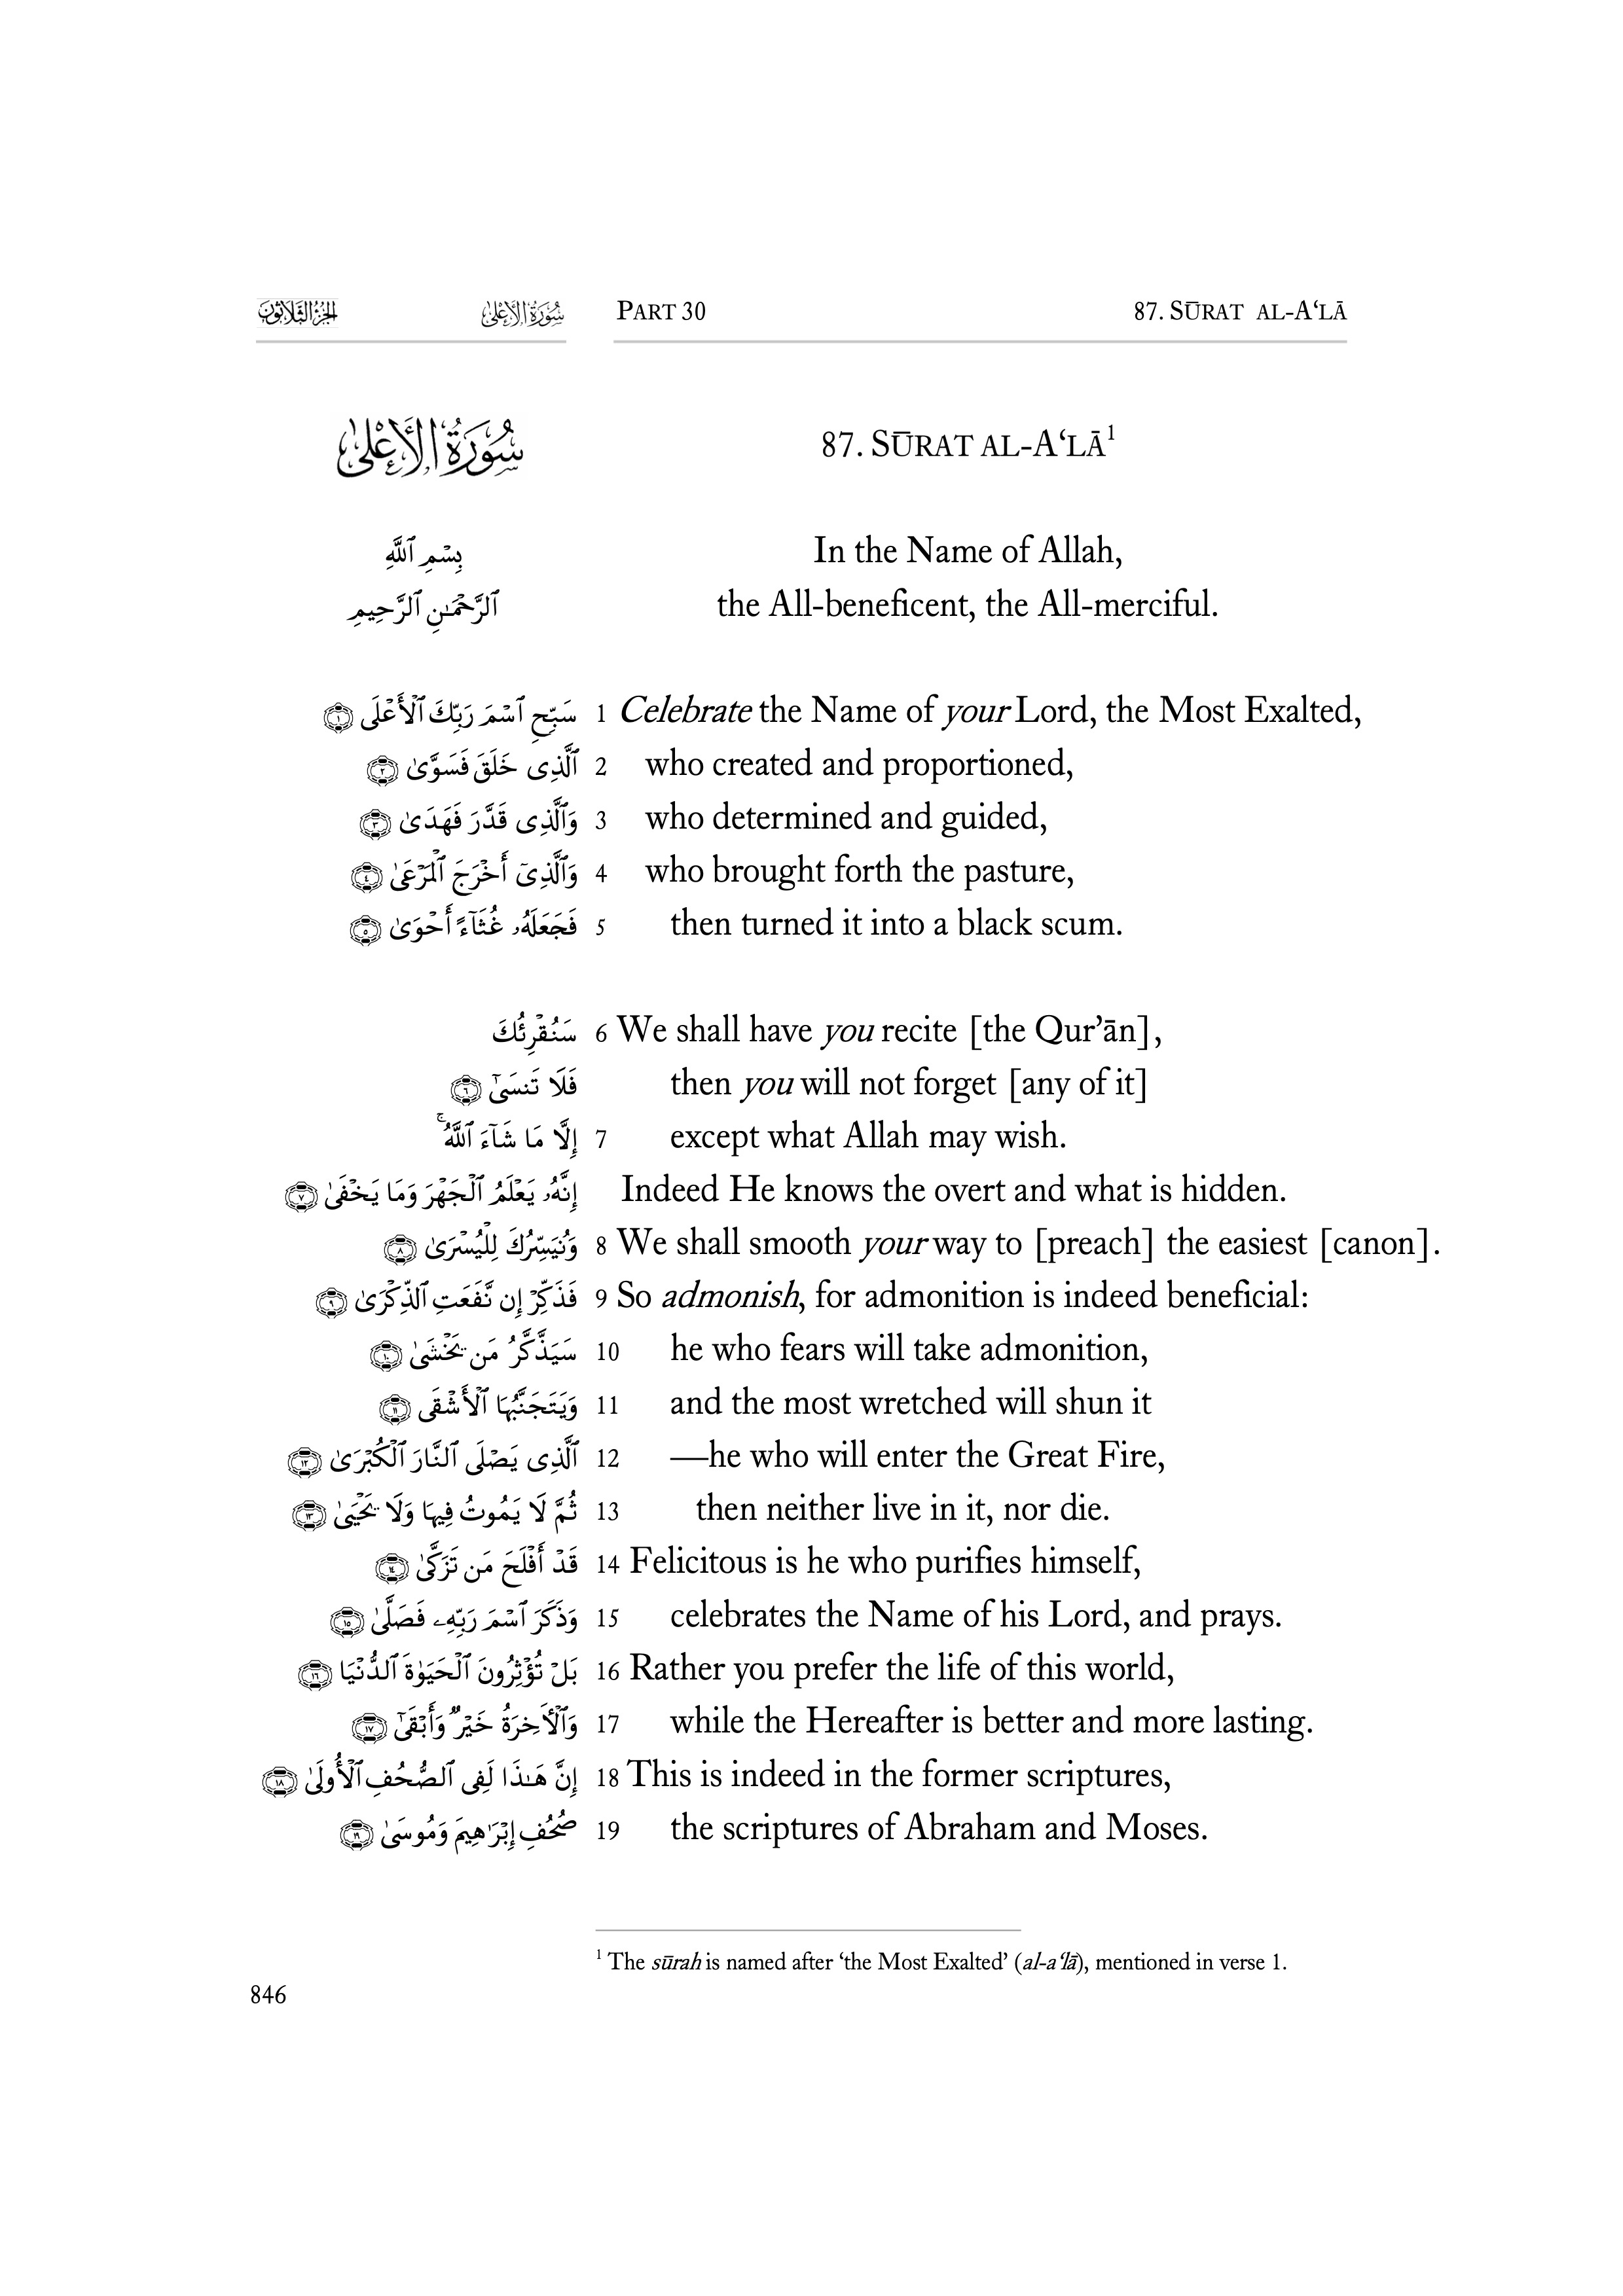 الجزء الثلاثون سورة الأعلى PART 30 87. SŪRAT AL-A‘LĀ
سُورَةُ الأَعْلَىٰ 87. SŪRAT AL-A‘LĀ¹
بِسْمِ ٱللَّهِ In the Name of Allah,
ٱلرَّحْمَـٰنِ ٱلرَّحِيمِ the All-beneficent, the All-merciful.
سَبِّحِ ٱسْمَ رَبِّكَ ٱلْأَعْلَى ﴿١﴾ 1 Celebrate the Name of your Lord, the Most Exalted,
ٱلَّذِى خَلَقَ فَسَوَّىٰ ﴿٢﴾ 2 who created and proportioned,
وَٱلَّذِى قَدَّرَ فَهَدَىٰ ﴿٣﴾ 3 who determined and guided,
وَٱلَّذِىٓ أَخْرَجَ ٱلْمَرْعَىٰ ﴿٤﴾ 4 who brought forth the pasture,
فَجَعَلَهُۥ غُثَآءً أَحْوَىٰ ﴿٥﴾ 5 then turned it into a black scum.
سَنُقْرِئُكَ 6 We shall have you recite [the Qur’ān],
فَلَا تَنسَىٰٓ ﴿٦﴾ then you will not forget [any of it]
إِلَّا مَا شَآءَ ٱللَّهُ ۚ 7 except what Allah may wish.
إِنَّهُۥ يَعْلَمُ ٱلْجَهْرَ وَمَا يَخْفَىٰ ﴿٧﴾ Indeed He knows the overt and what is hidden.
وَنُيَسِّرُكَ لِلْيُسْرَىٰ ﴿٨﴾ 8 We shall smooth your way to [preach] the easiest [canon].
فَذَكِّرْ إِن نَّفَعَتِ ٱلذِّكْرَىٰ ﴿٩﴾ 9 So admonish, for admonition is indeed beneficial:
سَيَذَّكَّرُ مَن يَخْشَىٰ ﴿١٠﴾ 10 he who fears will take admonition,
وَيَتَجَنَّبُهَا ٱلْأَشْقَى ﴿١١﴾ 11 and the most wretched will shun it
ٱلَّذِى يَصْلَى ٱلنَّارَ ٱلْكُبْرَىٰ ﴿١٢﴾ 12 —he who will enter the Great Fire,
ثُمَّ لَا يَمُوتُ فِيهَا وَلَا يَحْيَىٰ ﴿١٣﴾ 13 then neither live in it, nor die.
قَدْ أَفْلَحَ مَن تَزَكَّىٰ ﴿١٤﴾ 14 Felicitous is he who purifies himself,
وَذَكَرَ ٱسْمَ رَبِّهِۦ فَصَلَّىٰ ﴿١٥﴾ 15 celebrates the Name of his Lord, and prays.
بَلْ تُؤْثِرُونَ ٱلْحَيَوٰةَ ٱلدُّنْيَا ﴿١٦﴾ 16 Rather you prefer the life of this world,
وَٱلْـَٔاخِرَةُ خَيْرٌ وَأَبْقَىٰٓ ﴿١٧﴾ 17 while the Hereafter is better and more lasting.
إِنَّ هَـٰذَا لَفِى ٱلصُّحُفِ ٱلْأُولَىٰ ﴿١٨﴾ 18 This is indeed in the former scriptures,
صُحُفِ إِبْرَٰهِيمَ وَمُوسَىٰ ﴿١٩﴾ 19 the scriptures of Abraham and Moses.
¹ The sūrah is named after ‘the Most Exalted’ (al-a‘lā), mentioned in verse 1.
846